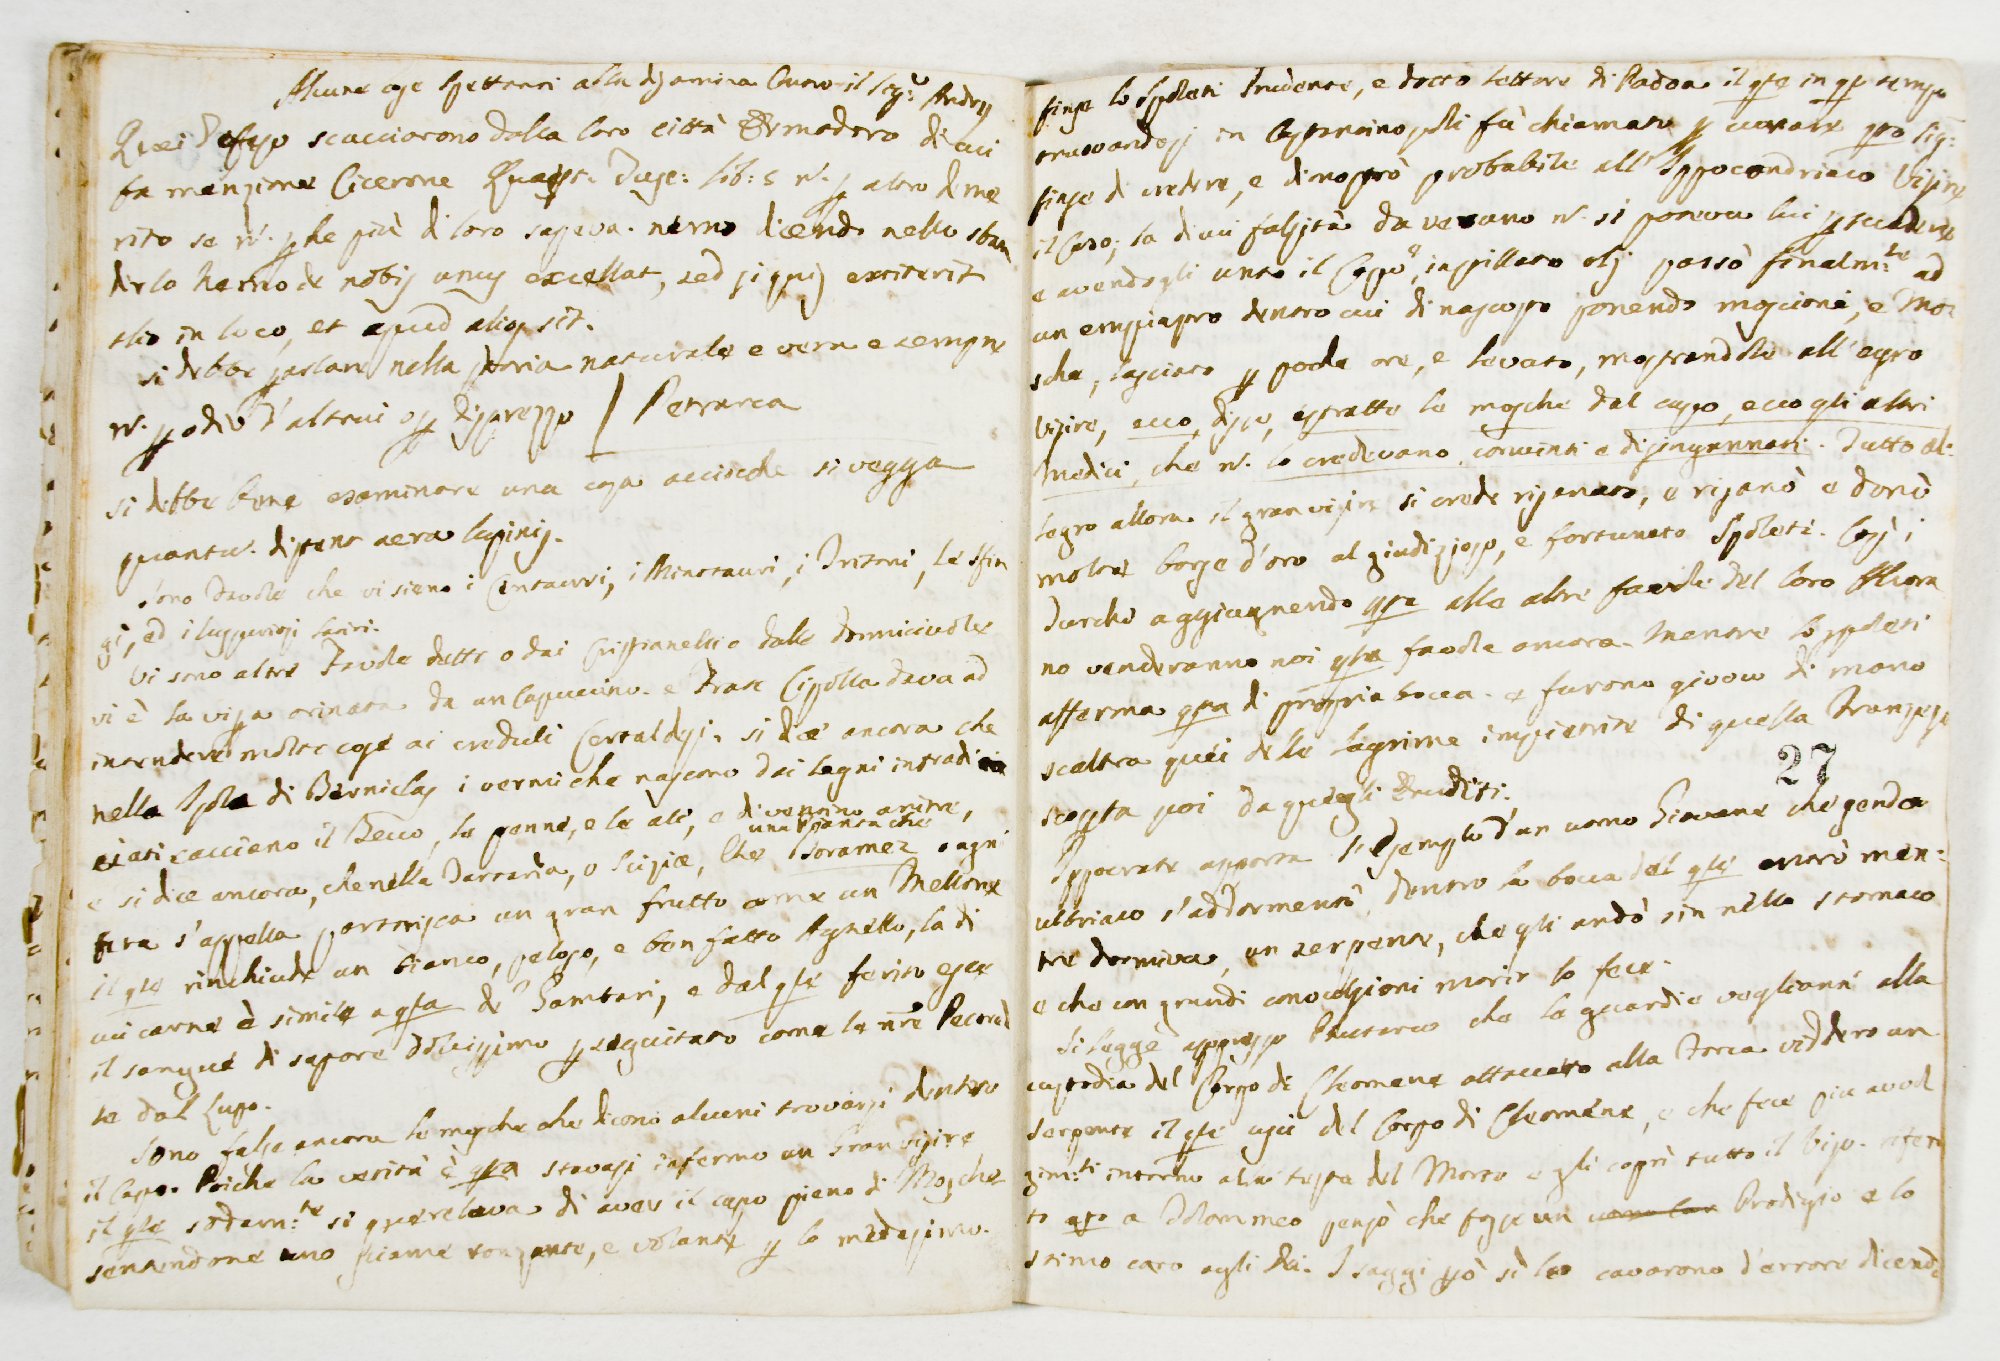 Alcune cose spettanti alla disamina Contro il Sig:r Andry
Quei d'Efeso scacciarono dalla loro città Ermodoro di cui
fa menzione Cicerone Quaest: Tusc: lib: 5 n. p altro deme
rito se n. pche più di loro sapeva. nemo dicendo nello sban
dirlo Nemo de nobis unus excellat, sed si quis extiterit
alio in loco, et apud alios sit.
si debbe parlare nella storia naturale e vera e sempre
n. p odio d'altrui o p disprezzo / Petrarca
si debbe bene esaminare una cosa acciocche si vegga
quantu. distent aera lupinis.
sono Favole che vi sieno i Centauri, i Minotauri, i Tritoni, le Sfin
gi, ed i lussuriosi Satiri.
Vi sono altre Favole dette o dai Cristianelli o dalle donniciuole
vi è la vipa orinata da un Capuccino. e Frate Cipolla dava ad
intendere molte cose ai creduli Certaldesi. si dice ancora che
nella Isola di Berniclas i vermi che nascono dai legni infradi
ciati cacciano il Becco, le penne, e le ali, e divenino anitre,
una pianta che
e si dice ancora, che nella Tartaria, o Scizia, che Boramez ogni
fera s'appella partorisca un gran frutto come un Mellone
il qle rinchiude un bianco, peloso, e ben fatto Agnello, la di
cui carne è simile a qlla de' Gambari, e dal qle ferito esce
il sangue di sapore dolcissimo pseguitato come le nre Pecore
te dal Lupo.
Sono false ancora le mosche che dicono alcuni trovarsi dentro
il Capo. Poiche la verità è qsta stavasi infermo un Gran visire
il qle sodam:te si querelava di aver il capo pieno di Mosche
sentendone uno sciame ronzante, e volante p lo medesimo.
finse lo Spoleti Prudente, e dotto lettore di Padoa il qle in ql tempo
truovandosi in Costantinopoli fù chiamato p curare qsto Sig:
finse di credere, e dimostrò probabile all' Ippocondriaco Visire
il Caso; la di cui falsità da verano n. si poteva lui psuadere
e avendogli unto il Capo, instillato olj passò finalm:te ad
un empiastro dentro cui di nascosto ponendo moscioni, e Mo
sche, lasciato p poche ore, e levato, mostrandole all'egro
Visire, ecco, disse, estratte le mosche dal capo, ecco gli altri
Medici, che n. lo credevano, convinti e disingannati. Tutto al:
legro allora il gran visire si crede risanato, e risanò e donò
molte borse d'oro al giudizioso, e fortunato Spoleti. Così i
Turchi aggiugnendo qsta alle altre favole del loro Alcora
no venderanno noi qsta favola ancora. Mentre lo Spoleti
afferma qsta di propria bocca. e furono givoco di mano
scaltra quei delle lagrime impietrite di quella Franzese
27
scopta poi da quegli Eruditi.
Ippocrate apporta l'esemplo d'un uomo Giovane che gendo
ubbriaco s'addormentò. Dentro la bocca del qle entrò men:
tre dormiva, un serpente, che gli andò sin nello stomaco
e che con grandi convulsioni morir lo fece.
Si legge appresso Plutarco che la guardie veglianti alla
custodia del Corpo di Cleomene attaccato alla Forca viddero un
serpente il qle uscì del Corpo di Cleomene, e che fece più avvol
gim:ti intorno alla testa del Morto e gli coprì tutto il Viso. riferi
to qsto a Tolommeo pensò che fosse un Prodigio e lo
stimo caro agli Dei. I saggi pò sì lo cavarono d'errore dicendo